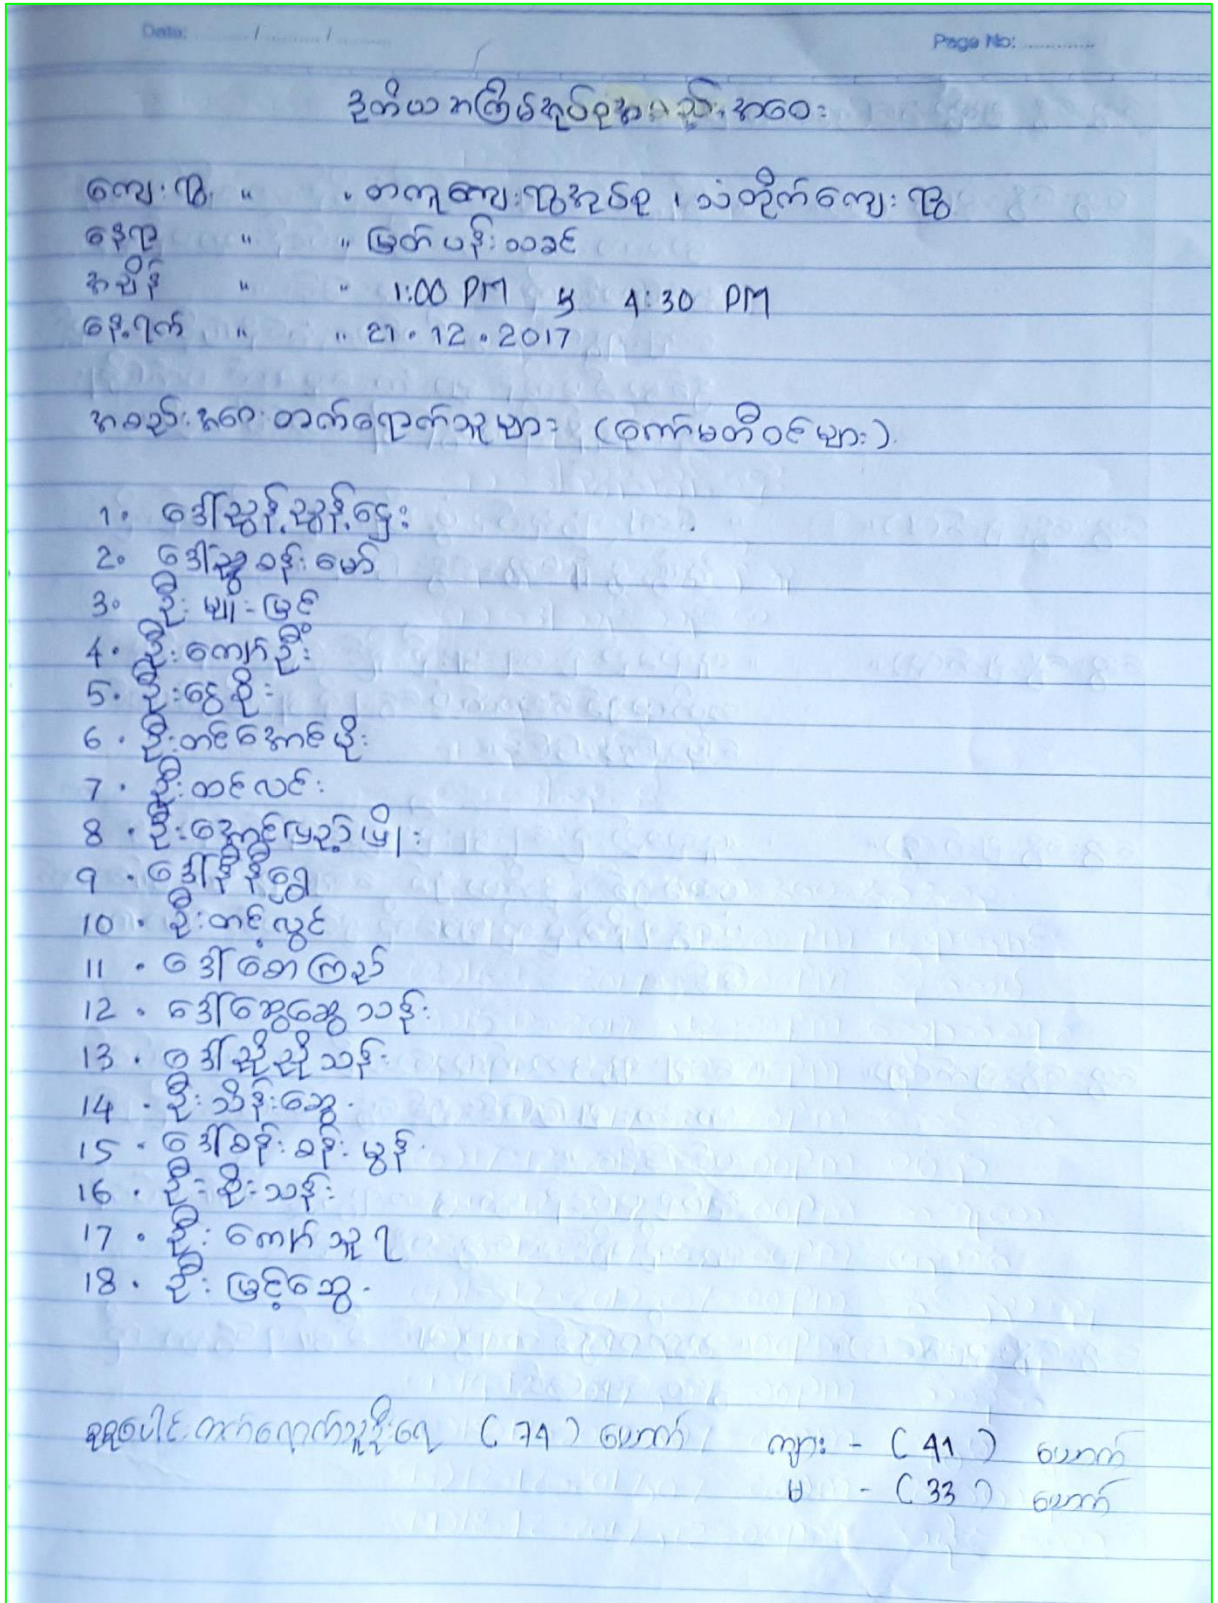 Date: ......... / ......... / .........
Page No: .............
ဒုတိယအကြိမ်အုပ်စုအစည်းအဝေး
ကျေးရွာ " " တကူကျေးရွာအုပ်စု ၊ သံတိုက်ကျေးရွာ
နေရာ " " မြတ်ပန်းသခင်
အချိန် " " 1:00 PM မှ 4:30 PM
နေ့ရက် " " 21.12.2017
အစည်းအဝေးတက်ရောက်သူများ (ကော်မတီဝင်များ)
1. ဒေါ်ညွန့်ညွန့်ဌေး
2. ဒေါ်ညွန့်ခန်းမော်
3. ဦးမျိုးမြင့်
4. ဦးကျော်ဦး
5. ဦးငွေစိုး
6. ဦးတင်အောင်ဖိုး
7. ဦးထင်လင်း
8. ဦးအောင်မြည့်ဖြိုး
9. ဒေါ်နီနီရွှေ
10. ဦးတင့်လွင်
11. ဒေါ်စောကြည်
12. ဒေါ်ဆွေဆွေသန်း
13. ဒေါ်ညိုညိုသန်း
14. ဦးသိန်းဆွေ
15. ဒေါ်ခင်းခင်းမွန်
16. ဦးစိုးသန်း
17. ဦးကျော်သူရ
18. ဦးမြင့်ဆွေ
စုစုပေါင်းတက်ရောက်သူဦးရေ (74) ယောက် ကျား - (41) ယောက်
မ - (33) ယောက်